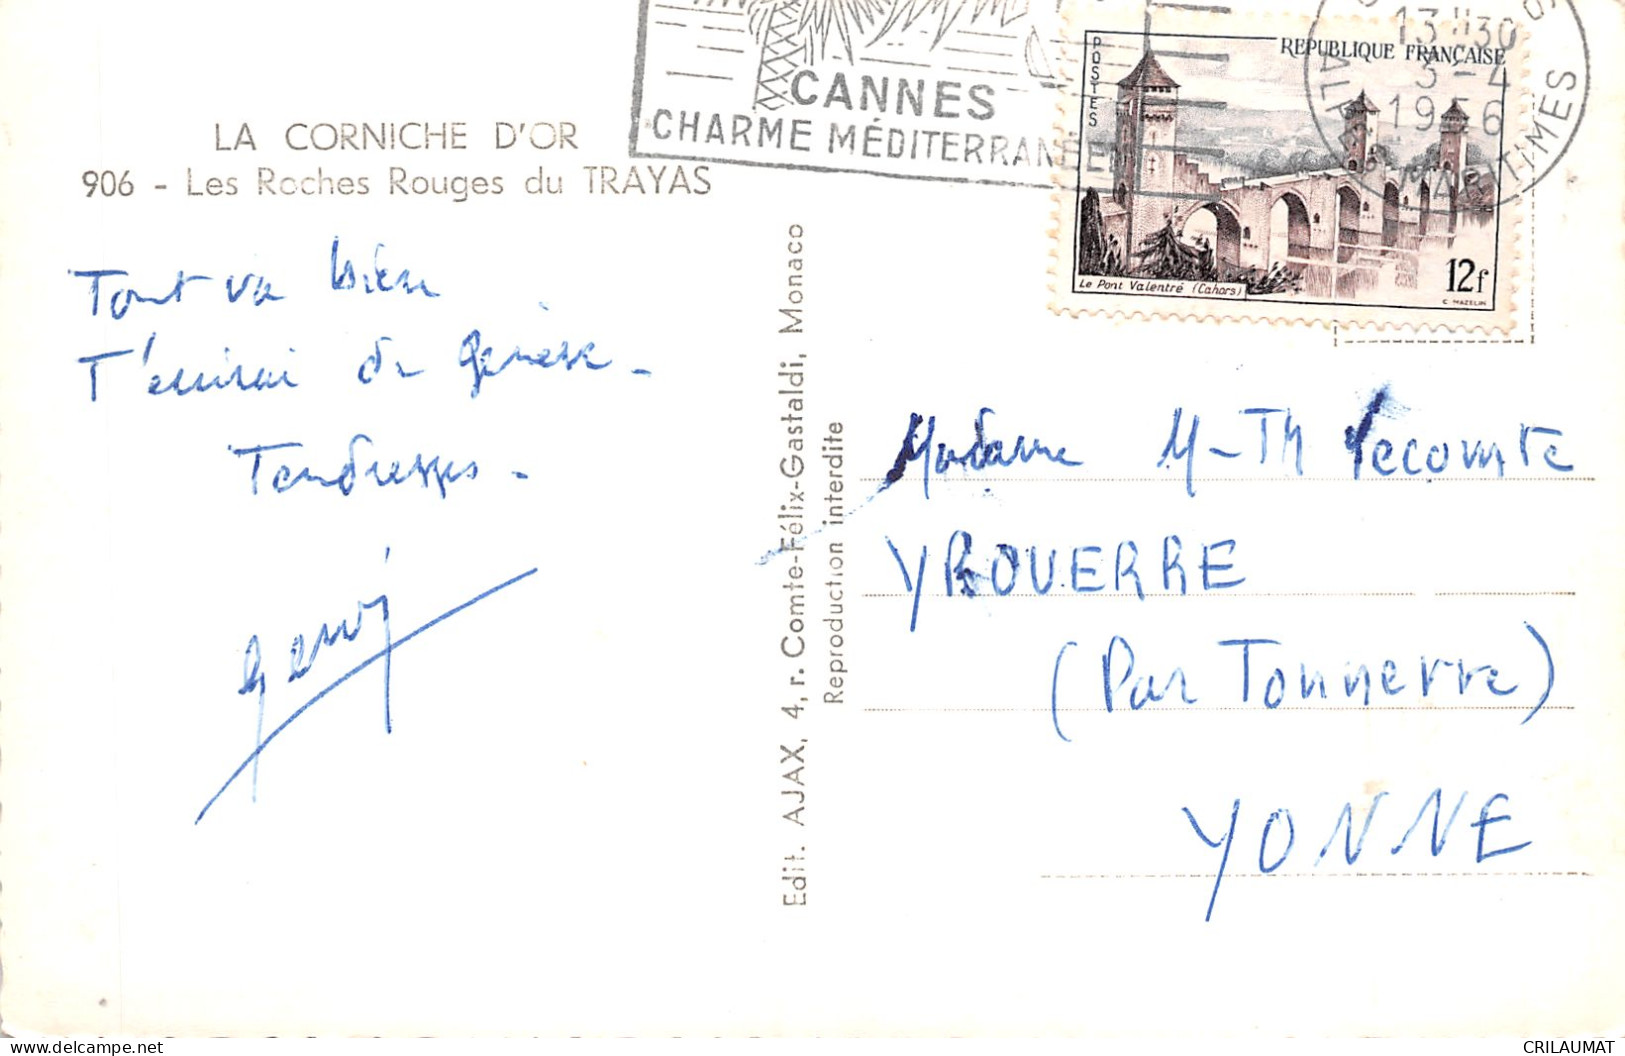 LA CORNICHE D'OR
906 - Les Roches Rouges du TRAYAS
Tout va bien
T'écrirai de Genève -
Tendresses -
CANNES
CHARME MÉDITERRANÉEN
13H30
3 - 4
1956
ALPES MARITIMES
POSTES
REPUBLIQUE FRANÇAISE
Le Pont Valentré (Cahors)
12f
C. MAZELIN
Edit. AJAX, 4, r. Comte-Félix-Gastaldi, Monaco
Reproduction interdite
Madame M-Th Lecomte
YROUERRE
(Par Tonnerre)
YONNE
CRILAUMAT